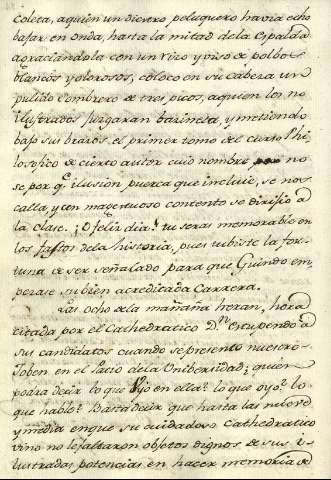 coleta, aquien un diestro peluquero havia echo
bajar en onda, hasta la mitad dela Espalda
agraciandola con un rizo y viso de polbos
blancos y olorosos, coloco en su cabeza un
pulido sombrero de tres picos, aquien los no
ilustrados juzgaran bazineta, y metiendo
bajo sus brazos el primer tomo del curso Phi
losofico de cierto autor cuio nombre no
se por q.e ilusion puerca que incluie, se nos
calla y con magestuoso contento se dirijio a
la clase. ¡O feliz dia! tu seras memorable en
los fastos dela historia, pues tubiste la for-
tuna de ser señalado para que Guindo em
pezase su bien acreditada Carrera.
Las ocho dela mañana heran, hora
citada por el Cathedratico D.n estupendo a
sus candidatos cuando se presento nuestro
Joben en el Patio dela Unibersidad; quien
podra decir lo que vio en ella? lo que oyo? lo
que hablo? Basta decir que hasta las nuebe
y media enque su cuidadoso Cathedratico
vino no le faltaron objetos dignos de sus i
lustradas potencias en hacer memoria de